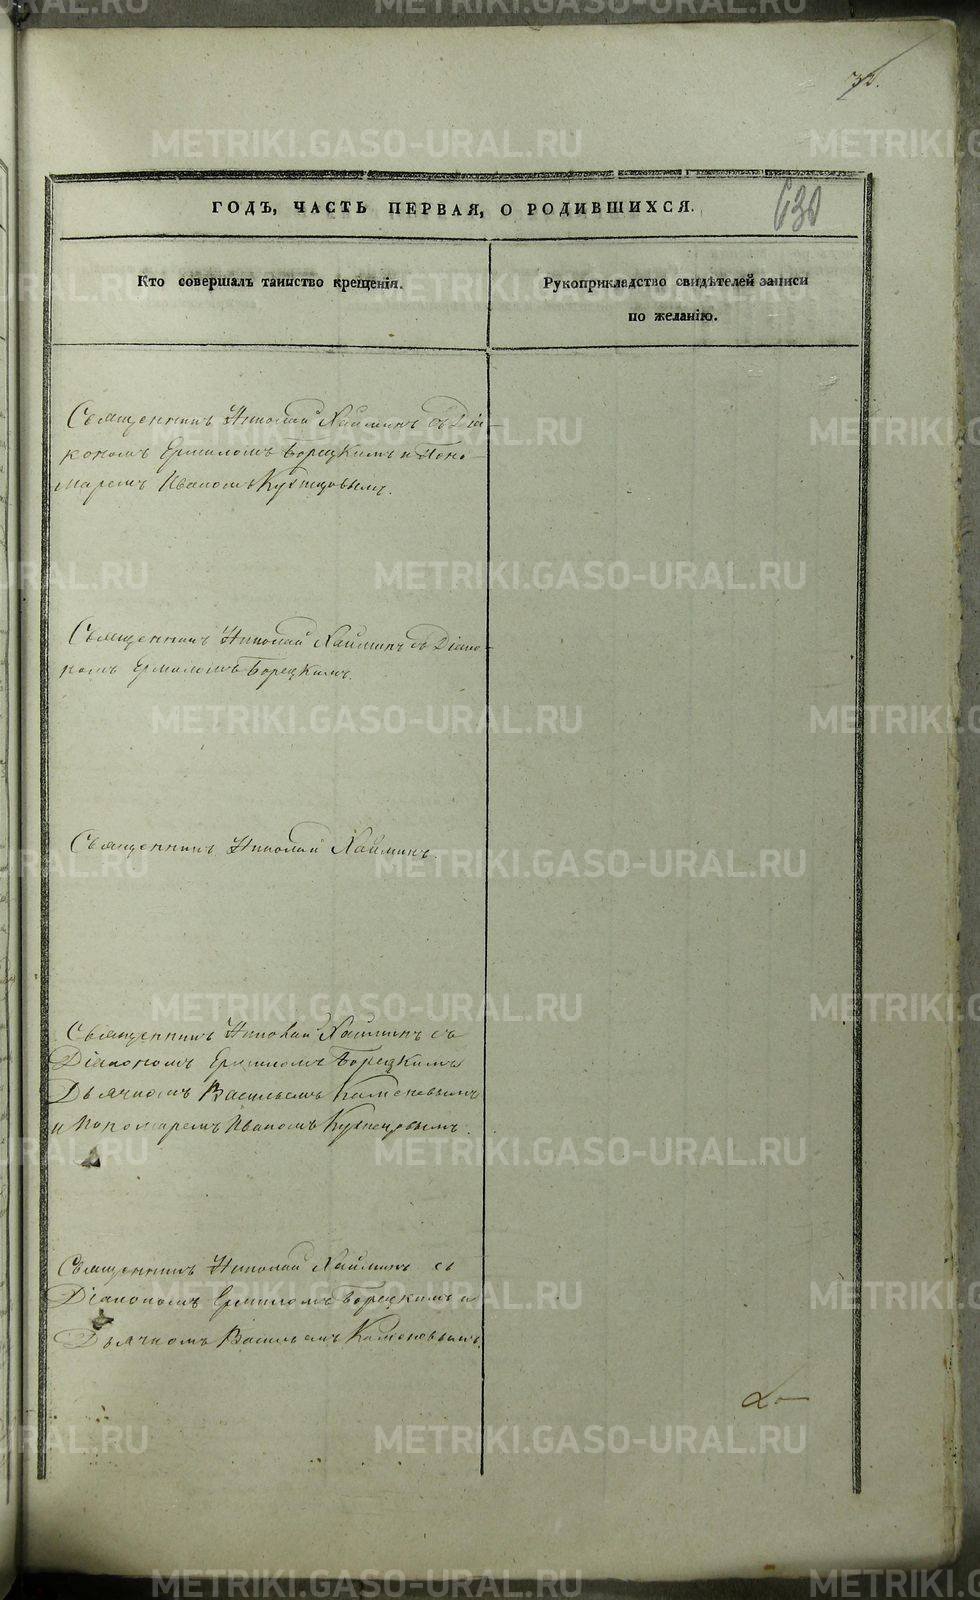 32.
630
ГОДЪ, ЧАСТЬ ПЕРВАЯ, О РОДИВШИХСЯ.
Кто совершалъ таинство крещенія.
Рукоприкладство свидѣтелей записи
по желанію.
Священникъ Николай Хайминъ съ Діа-
кономъ Ермиломъ Борецкимъ и Поно-
маремъ Иваномъ Кузнецовымъ.
Священникъ Николай Хайминъ съ Діако-
номъ Ермиломъ Борецкимъ.
Священникъ Николай Хайминъ.
Священникъ Николай Хайминъ съ
Діакономъ Ермиломъ Борецкимъ
Дьячкомъ Васильемъ
и Пономаремъ Иваномъ Кузнецовымъ.
Священникъ Николай Хайминъ съ
Діакономъ Ермиломъ Борецкимъ и
Дьячкомъ Васильемъ
METRIKI.GASO-URAL.RU